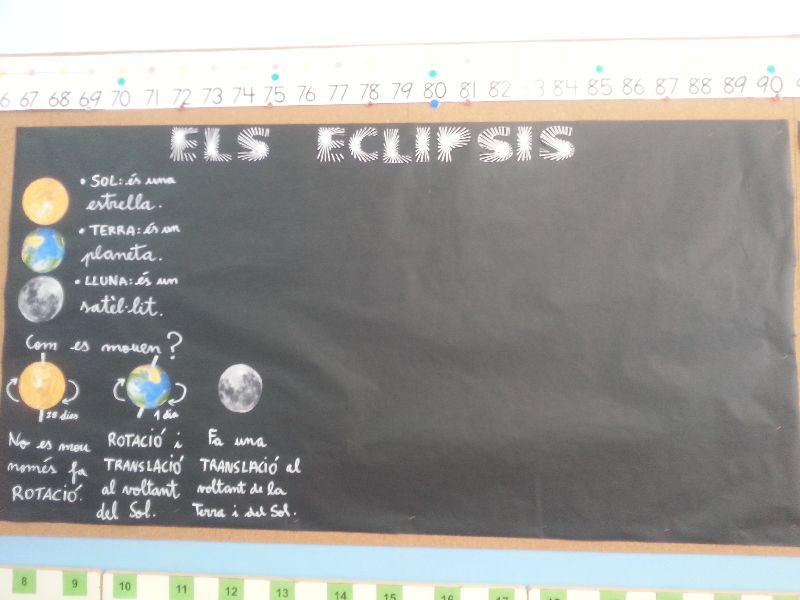 67 68 69 70 71 72 73 74 75 76 77 78 79 80 81 82 83 84 85 86 87 88 89 90
ELS ECLIPSIS
• SOL: és una
estrella.
• TERRA: és un
planeta.
• LLUNA: és un
satèl·lit.
Com es mouen?
28 dies
1 dia
No es mou
només fa
ROTACIÓ.
ROTACIÓ i
TRANSLACIÓ
al voltant
del Sol.
Fa una
TRANSLACIÓ al
voltant de la
Terra i del Sol.
8 9 10 11 12 13 14 15 16 17 18